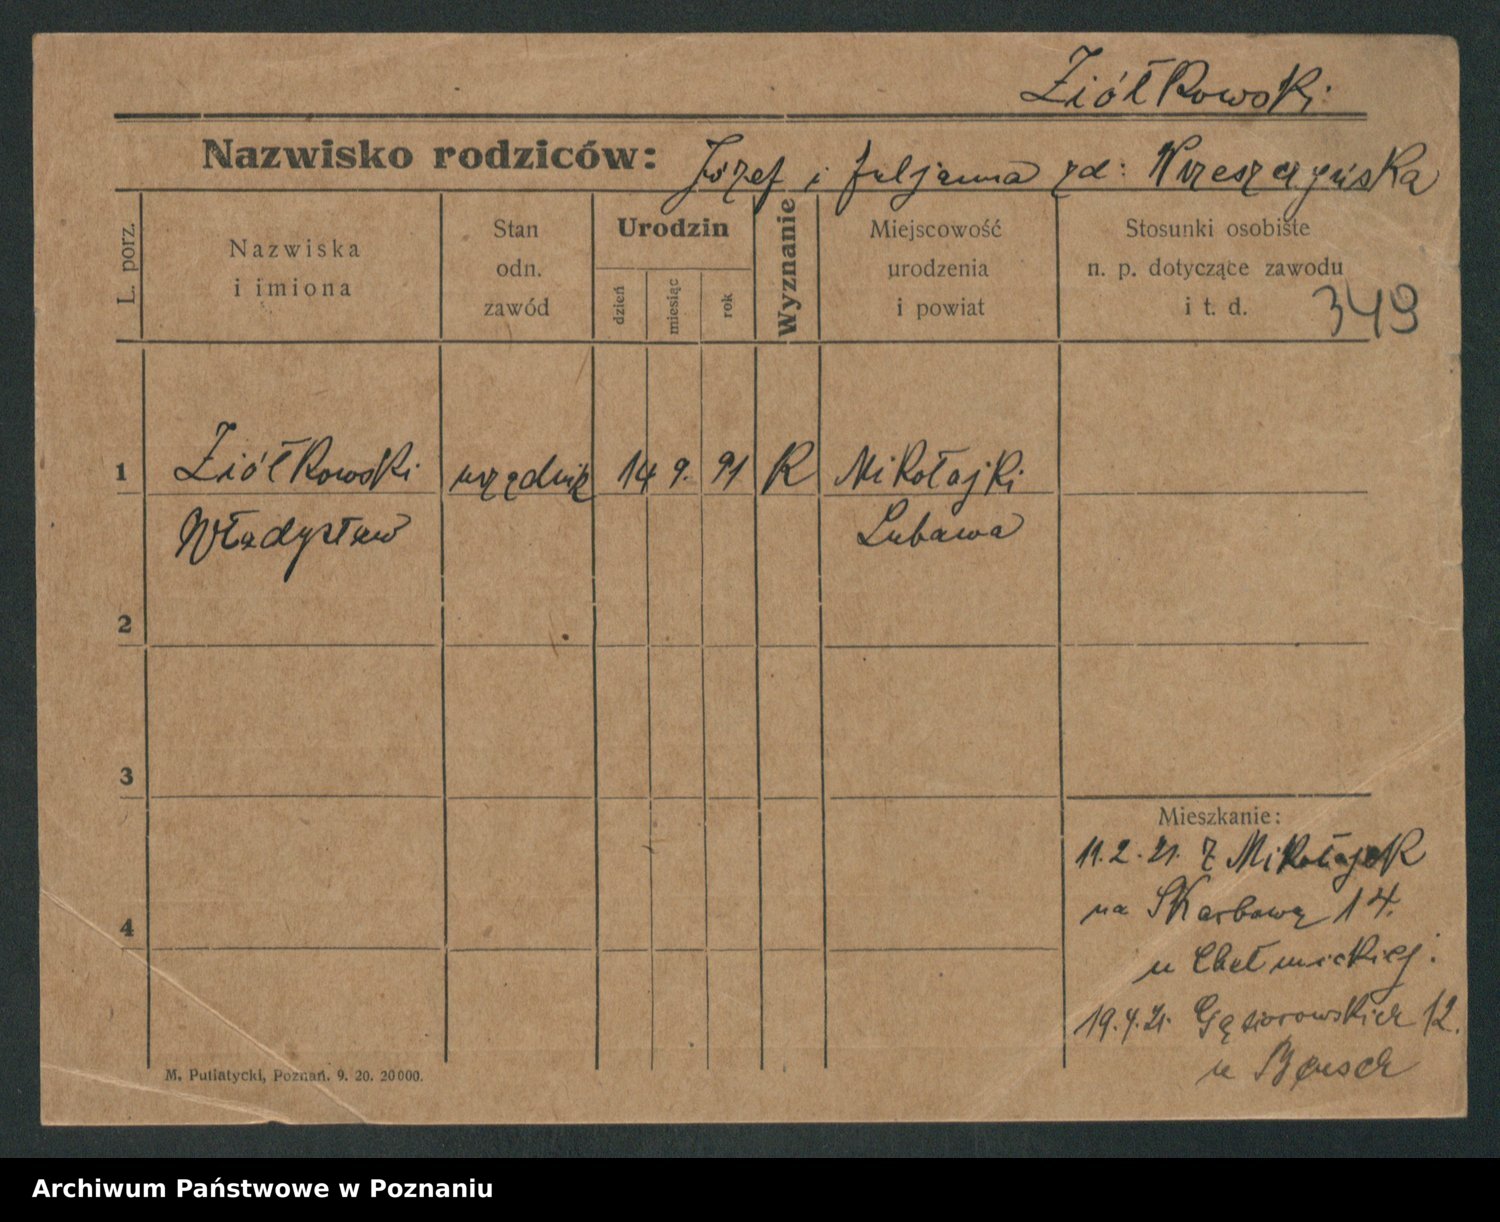 Ziółkowski
Nazwisko rodziców: Józef i Juljanna zd: Wreszczyńska
L. porz.
Nazwiska
i imiona
Stan
odn.
zawód
Urodzin
dzień
miesiąc
rok
Wyznanie
Miejscowość
urodzenia
i powiat
Stosunki osobiste
n. p. dotyczące zawodu
i t. d.
349
1 Ziółkowski urzędnik 14 9. 91 R Mikołajki
Władysław Lubawa
2
3
4
Mieszkanie:
11.2.21. Z Mikołajek
na Skarbową 14.
u Chełmickiej.
19.4.21. Gąsiorowskich 12.
u
M. Putiatycki, Poznań. 9. 20. 20000.
Archiwum Państwowe w Poznaniu